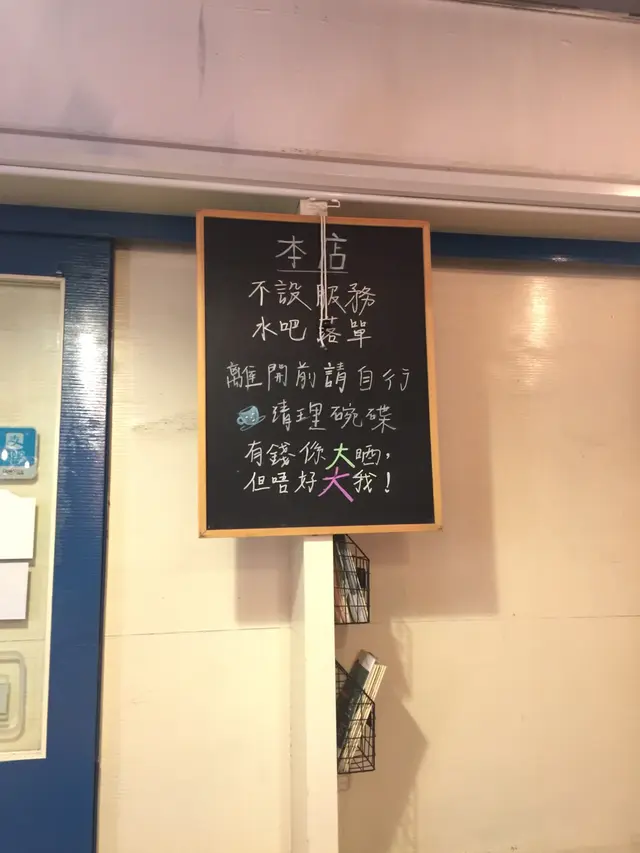 本店
不設服務
水吧落單
離開前請自行
清理碗碟
有錢係大晒,
但唔好大我!